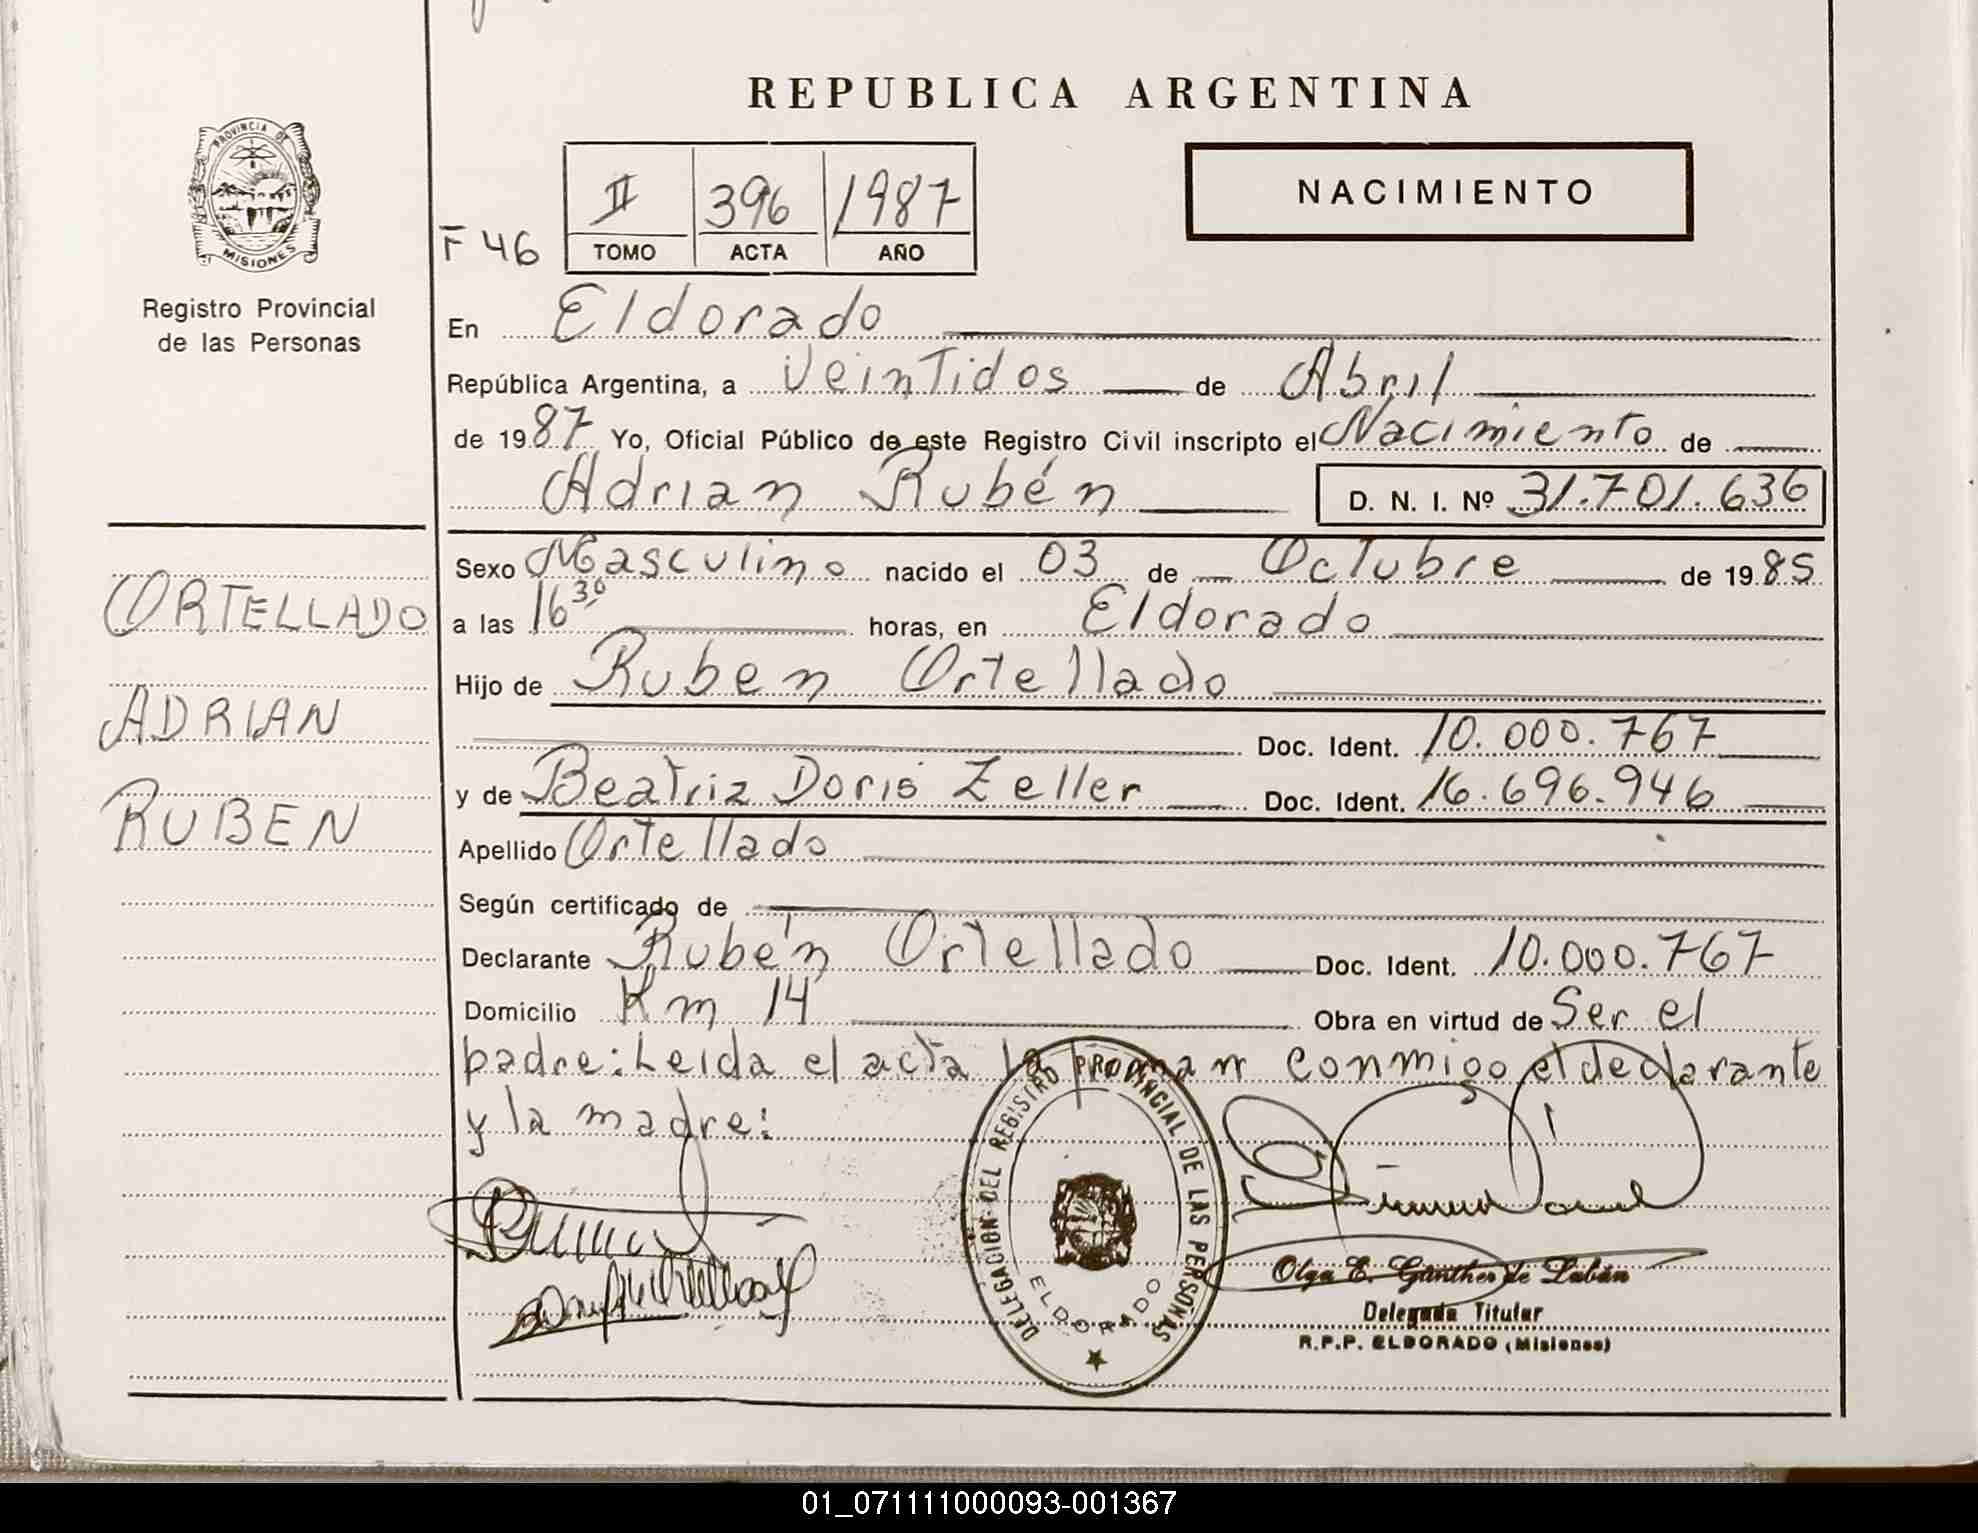 REPUBLICA ARGENTINA
PROVINCIA DE
MISIONES
Registro Provincial
de las Personas
F 46
II 396 1987
TOMO ACTA AÑO
NACIMIENTO
En Eldorado
República Argentina, a Veintidos de Abril
de 1987 Yo, Oficial Público de este Registro Civil inscripto el Nacimiento de
Adrian Rubén D. N. I. Nº 31.701.636
Sexo Masculino nacido el 03 de Octubre de 1985
a las 16 30 horas, en Eldorado
Hijo de Ruben Ortellado
Doc. Ident. 10.000.767
y de Beatriz Doris Zeller Doc. Ident. 16.696.946
Apellido Ortellado
Según certificado de
Declarante Rubén Ortellado Doc. Ident. 10.000.767
Domicilio Km 14 Obra en virtud de Ser el
padre: Leida el acta la firman conmigo el declarante
y la madre:
ORTELLADO
ADRIAN
RUBEN
DELEGACION DEL REGISTRO PROVINCIAL DE LAS PERSONAS
ELDORADO
Olga E. Günther de Labán
Delegada Titular
R.P.P. ELDORADO (Misiones)
01_071111000093-001367